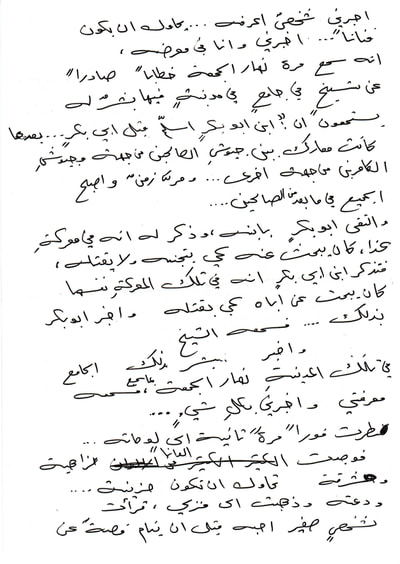 اخبرني شخصٌ اعرفه ... يحاول ان يكون
فناناً ... اخبرني وانا في معرضه ،
انه سمع مرة نهار الجمعة خطاباً صادراً
عن شيخ في جامع في مدينةٍ فيها بشرٌ له
يستمعون ان ابن ابو بكر اسلم قبل ابي بكر ... بعدها
كانت معارك بين جيوش الصالحين من جهة وجيوش
الكافرين من جهة اخرى ... ومرّ زمنٌ واصبح
الجميع في ما بعد من الصالحين ....
والتقى ابو بكر بابنه ، وذكر له انه في معركةٍ
كان يبحث عنه كي يتجنبه ولا يقتله ،
فتذكر ابن ابي بكر انه في تلك المعركة نفسها
كان يبحث عن اباه كي يقتله واخبر ابو بكر
بذلك .... فسمعه الشيخ
واخبر بشر تلك الجامع
في تلك المدينة نهار الجمعة ، فسمعه
معرفتي واخبرني بكل شيءٍ ...
نظرت فوراً مرة ثانية الى لوحاته ...
فوجدت الوانا زاهية
ومشرقة تحاول ان تكون حزينة ....
ودعته وذهبت الى منزلي ، قرأت
لشخصٍ صغير احبه قبل ان ينام قصة عن